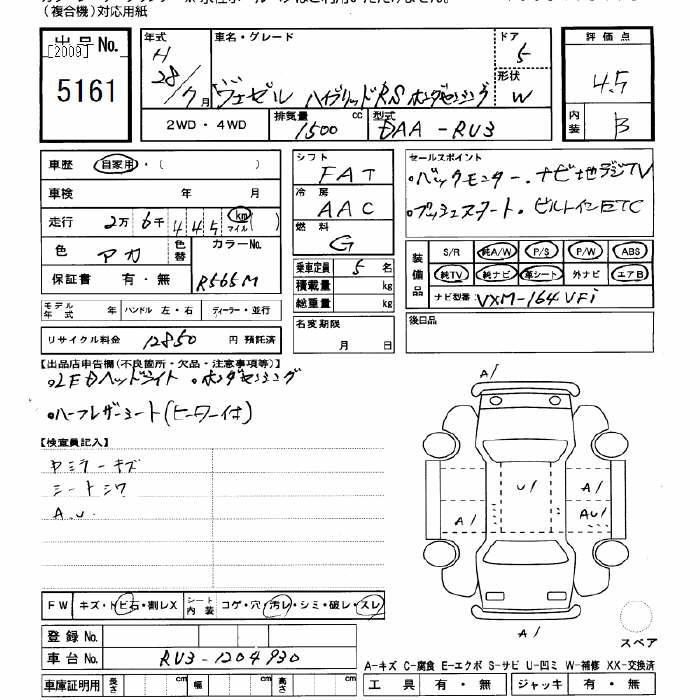 (複合機)対応用紙
出品No.
[2009]
5161
年式 H 28/7月
車名・グレード
ヴェゼル ハイブリッドRS ホンダセンシング
ドア 5
形状 W
評価点 4.5
内装 B
2WD・4WD
排気量 1500 cc
型式 DAA-RU3
車歴 自家用・( )
車検 年 月
走行 2万6千445 km マイル ( )
色 アカ
色替
カラーNo. R565M
保証書 有・無
モデル年式 年 ハンドル 左・右 ディーラー・並行
リサイクル料金 12850 円 預託済
シフト FAT
冷房 AAC
燃料 G
乗車定員 5 名
積載量 kg
総重量 kg
名変期限
月 日
セールスポイント
・バックモニター・ナビ地デジTV
・プッシュスタート・ビルトインETC
装備品
S/R 純A/W P/S P/W ABS
純TV 純ナビ 革シート 外ナビ エアB
ナビ型番 VXM-164VFi
後日品
【出品店申告欄(不良箇所・欠品・注意事項等)】
・LEDヘッドライト ・ホンダセンシング
・ハーフレザーシート(ヒーター付)
【検査員記入】
ヤミラーキズ
シートシワ
A.U.
A1
U1
A1
A1
AU1
A1
スペア
FW キズ・トビ石・割レX
シート内装 コゲ・穴・汚レ・シミ・破レ・スレ
登録No.
車台No. RU3-1204930
A-キズ C-腐食 E-エクボ S-サビ U-凹ミ W-補修 XX-交換済
車庫証明用 長さ cm 幅 cm 高さ cm
工具 有・無 ジャッキ 有・無